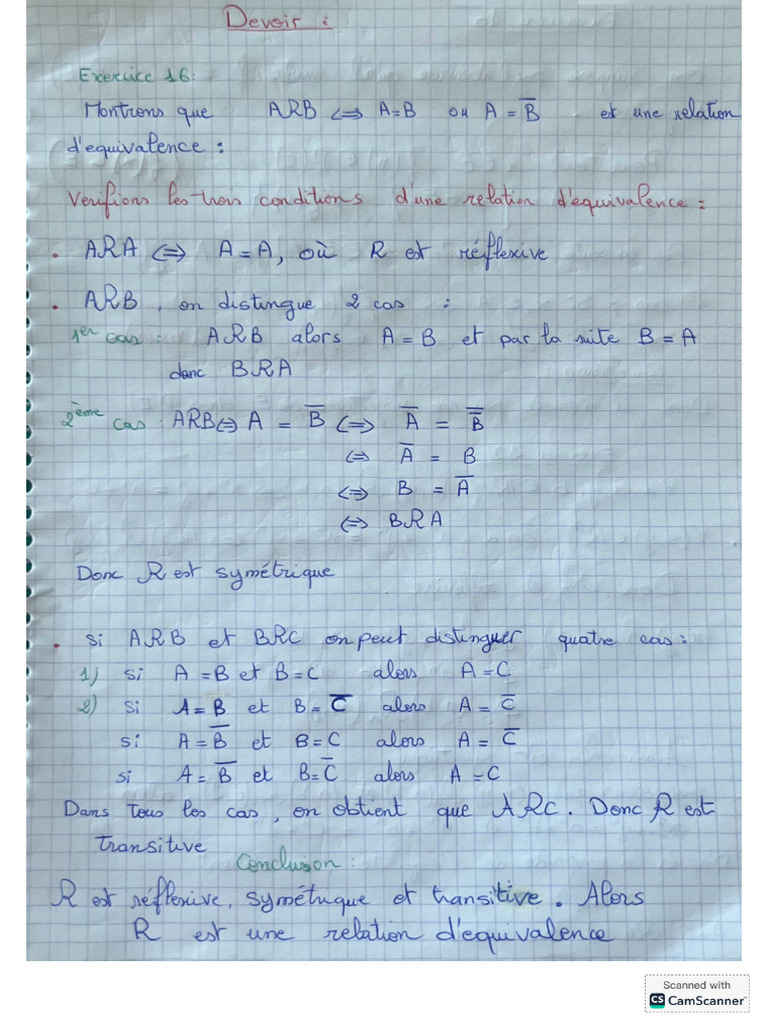 Devoir :
Exercice 16:
Montrons que ARB ⟺ A=B ou A = B̅ est une relation
d'equivalence :
Verifions les trois conditions d'une relation d'equivalence :
• ARA ⟺ A = A, où R est réflexive
• ARB, on distingue 2 cas :
1er cas : ARB alors A = B et par la suite B = A
donc BRA
2ème cas : ARB⟺ A = B̅ ⟺ A̅ = B̿
⟺ A̅ = B
⟺ B = A̅
⟺ BRA
Donc R est symétrique
• si ARB et BRC on peut distinguer quatre cas :
1) si A =B et B=C alors A =C
2) si A=B et B= C̅ alors A = C̅
si A=B̅ et B=C alors A = C̅
si A= B̅ et B=C̅ alors A =C
Dans tous les cas, on obtient que ARC. Donc R est
transitive
Conclusion :
R est réflexive, symétrique et transitive. Alors
R est une relation d'equivalence
Scanned with
CS CamScanner